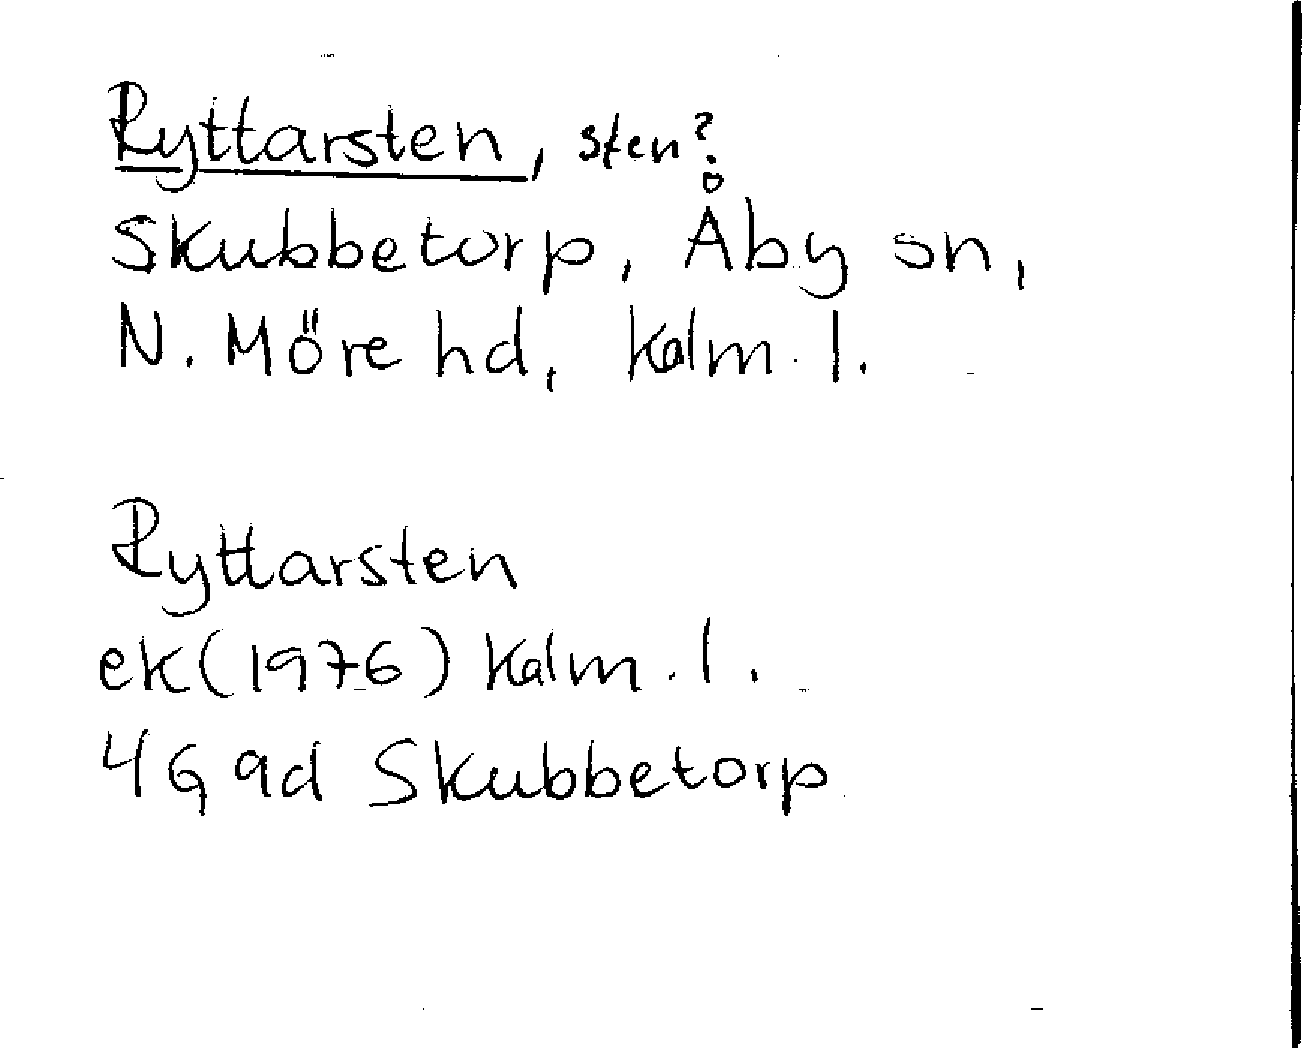 Ryttarsten, sten?
Skubbetorp, Åby sn,
N. Möre hd, Kalm. l.
Ryttarsten
ek (1976) Kalm. l.
4G 9d Skubbetorp